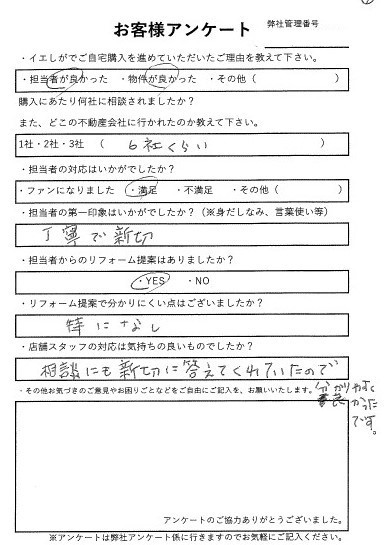 お客様アンケート
弊社管理番号
・イエしがでご自宅購入を進めていただいたご理由を教えて下さい。
・担当者が良かった ・物件が良かった ・その他（ ）
購入にあたり何社に相談されましたか？
また、どこの不動産会社に行かれたのか教えて下さい。
1社・2社・3社 （ 6社くらい ）
・担当者の対応はいかがでしたか？
・ファンになりました ・満足 ・不満足 ・その他（ ）
・担当者の第一印象はいかがでしたか？（※身だしなみ、言葉使い等）
丁寧で新切
・担当者からのリフォーム提案はありましたか？
・YES ・NO
・リフォーム提案で分かりにくい点はございましたか？
特になし
・店舗スタッフの対応は気持ちの良いものでしたか？
相談にも新切に答えてくれていたので
分かりやすく
良かった
です。
・その他お気づきのご意見やお困りごとなどをご自由にご記入を、お願いいたします。
アンケートのご協力ありがとうございました。
※アンケートは弊社アンケート係に行きますのでお気軽にご記入ください。